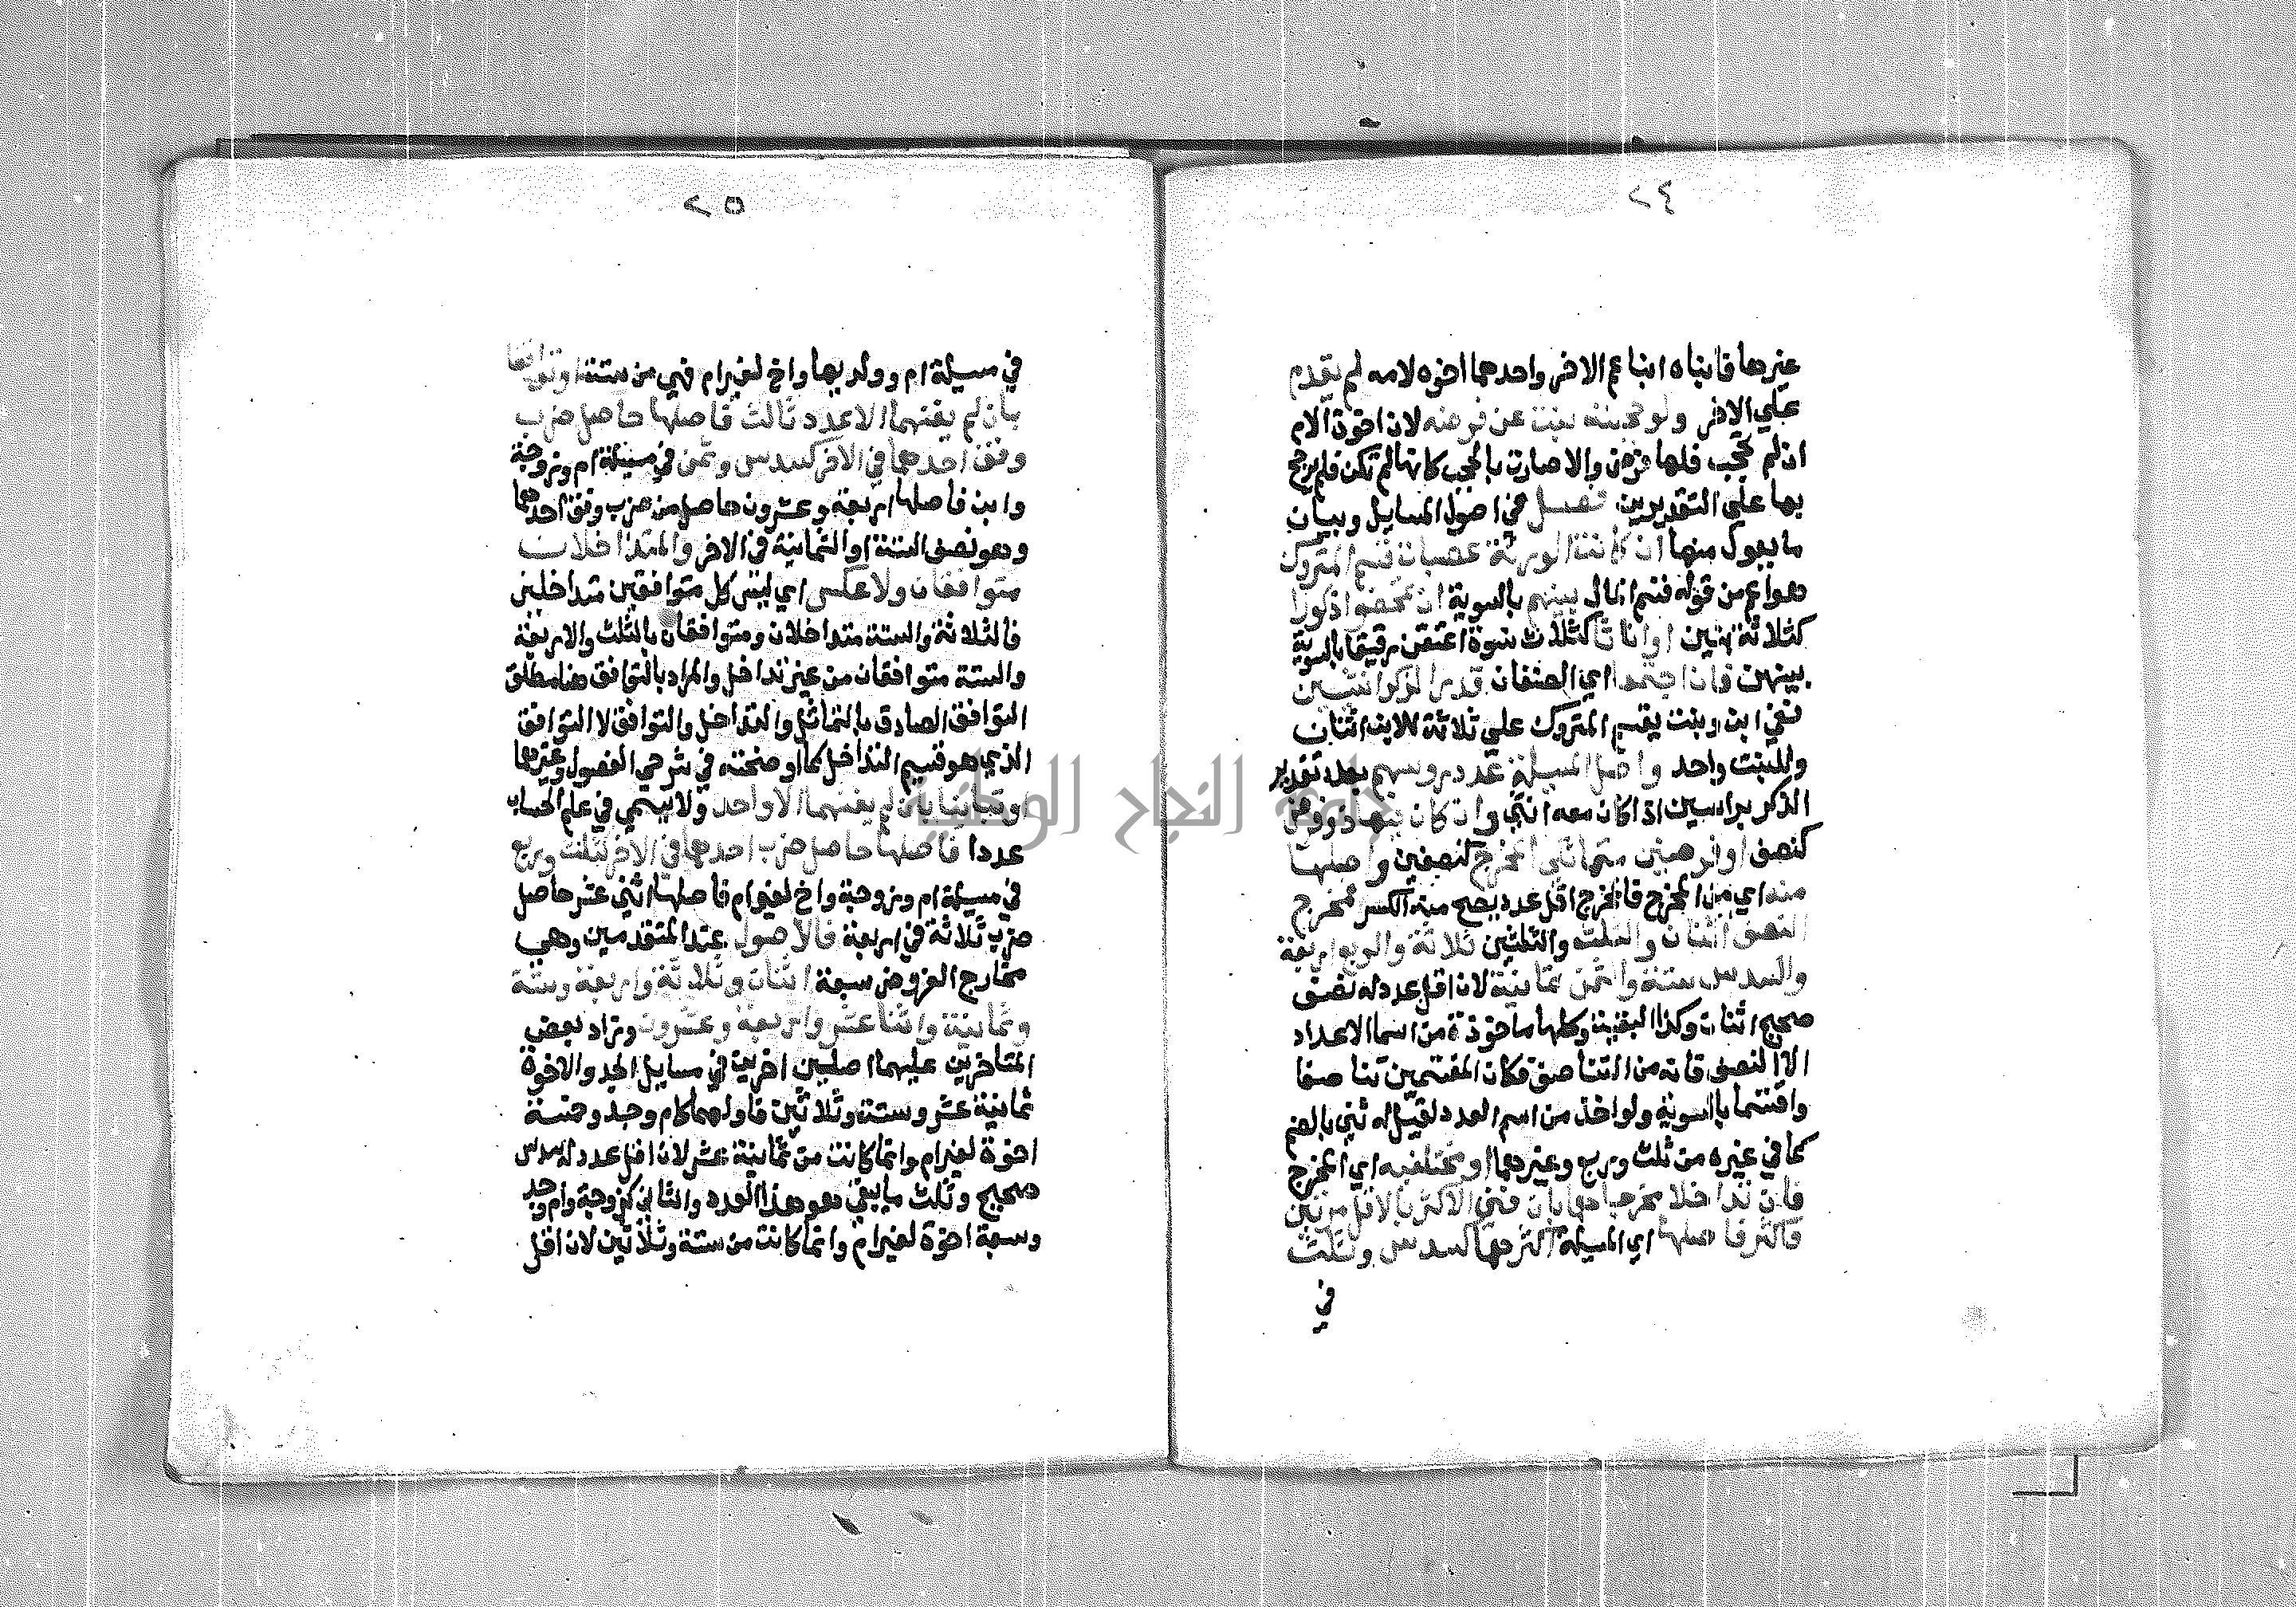 ٢٤
غيرها فابناه ابنا عم الاخر واحدهما اخوه لامه لم يقدم
علي الاخر ولو حجبته بنت عن فرضه لان اخوة الام
ان لم تحجب فلها فرض والا صارت بالحجب كانها لم تكن فلم يرجح
بها علي التقديرين فصل في اصول المسايل وبيان
ما يعول منها ان كانت الورثة عصبات قسم المتروك
هو اعم من قوله قسم المال بينهم بالسوية ان تمحضوا ذكورا
كثلاثة بنين او اناثا كثلاث نسوة اعتقن رقيقا بالسوية
بينهن فان اجتمعا اي الصنفان قدر الذكر انثيين
ففي ابن وبنت يقسم المتروك علي ثلاثة للابن اثنان
وللبنت واحد واصل المسيلة عدد روسهم بعد تقدير
الذكر براسين اذا كان معه انثي وان كان فيها ذو فرض
كنصف او فرضين متماثلي المخرج كنصفين واصلها
منه اي من المخرج فالمخرج اقل عدد يصح منه الكسر فمخرج
النصف اثنان والثلث والثلثين ثلاثة والربع اربعة
والسدس ستة والثمن ثمانية لان اقل عدد له نصف
صحيح اثنان وكذا البقية وكلها ماخوذة من اسما الاعداد
الا النصف فانه من التناصف فكان المقتسمين تناصفا
واقتسما بالسوية ولو اخذ من اسم العدد لقيل له ثني بالضم
كما في غيره من ثلث وربع وغيرهما او مختلفيه اي المخرج
فان تداخلا مخرجاهما بان فني الاكثر بالاقل مرتين
فاكثر فاصلها اي المسيلة اكثرهما كسدس وثلث
في
٢٥
في مسيلة ام وولديها واخ لغير ام فهي من ستة او توافقا
بان لم يفنهما الا عدد ثالث فاصلها حاصل ضرب
وفق احدهما في الاخر كسدس وثمن في مسيلة ام وزوجة
وابن فاصلها اربعة وعشرون حاصل من ضرب وفق احدهما
وهو نصف الستة او الثمانية في الاخر والمتداخلان
متوافقان ولا عكس اي ليس كل متوافقين متداخلين
فالثلاثة والستة متداخلان ومتوافقان بالثلث والاربعة
والستة متوافقان من غير تداخل والمراد بالتوافق هنا مطلق
التوافق الصادق بالتماثل والتداخل والتوافق لا التوافق
الذي هو قسيم التداخل كما اوضحته في شرحي الفصول وغيرهما
او تباينا بان لم يفنهما الا واحد ولا يسمي في علم الحساب
عددا فاصلها حاصل ضرب احدهما في الاخر كثلث وربع
في مسيلة ام وزوجة واخ لغير ام فاصلها اثني عشر حاصل
ضرب ثلاثة في اربعة فالاصول عند المتقدمين وهي
مخارج الفروض سبعة اثنان وثلاثة واربعة وستة
وثمانية واثنا عشر واربعة وعشرون وزاد بعض
المتاخرين عليها اصلين اخرين في مسايل الجد والاخوة
ثمانية عشر وستة وثلاثين فاولهما كام وجد وخمسة
اخوة لغير ام وانما كانت من ثمانية عشر لان اقل عدد له سدس
صحيح وثلث ما يبقي هو هذا العدد والثاني كزوجة وام وجد
وسبعة اخوة لغير ام وانما كانت من ستة وثلاثين لان اقل
جامعة النجاح الوطنية